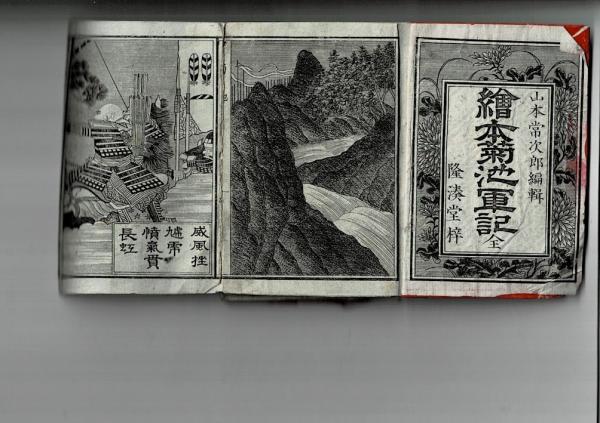 山本常次郎編輯
繪本菊池軍記 全
隆湊堂梓
威風挫
虓帀
憤氣貫
長虹